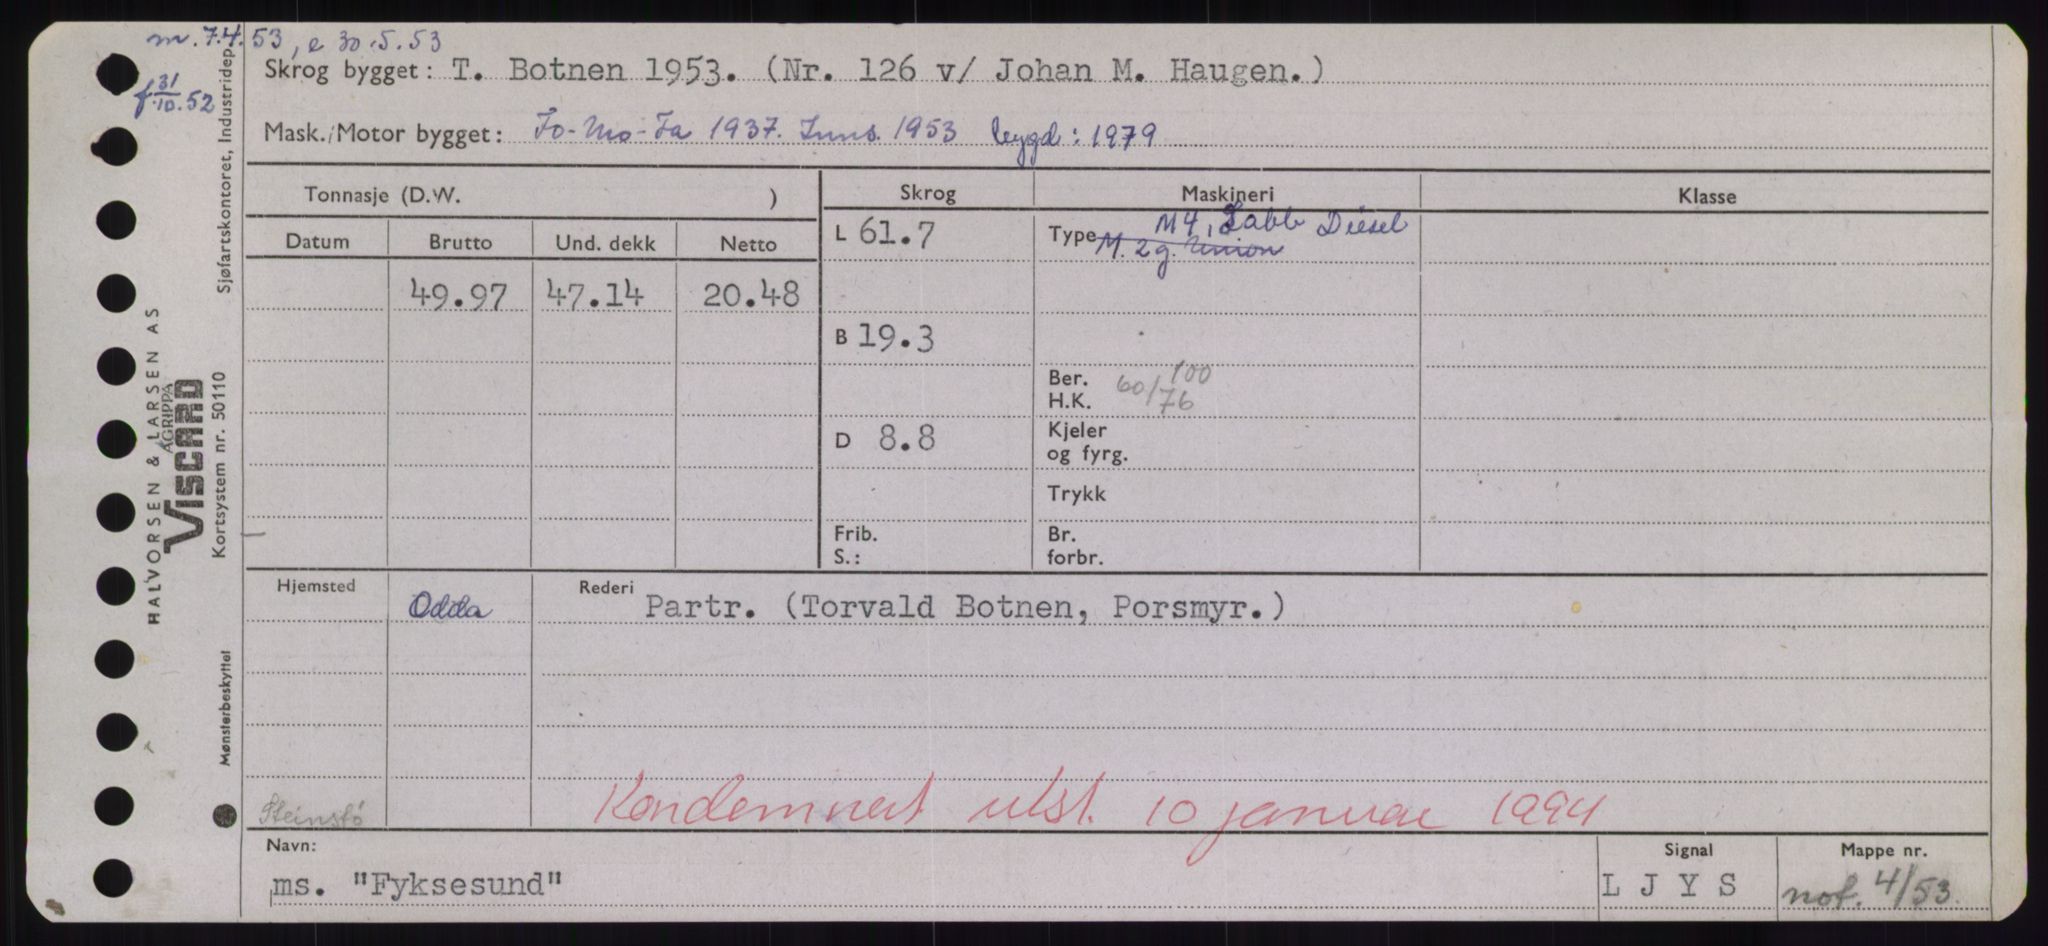 m. 7.4.53, e 30.5.53
f 31/10.52
Skrog bygget: T. Botnen 1953. (Nr. 126 v/ Johan M. Haugen.)
Mask./Motor bygget: Fo-Mo-Fa 1937. Inns. 1953 bygd: 1979
Tonnasje (D.W. )
Skrog Maskineri Klasse
Datum Brutto Und. dekk Netto
L 61.7 Type M 4, Sabb Diesel
M. 2 g. Union
49.97 47.14 20.48
B 19.3
Ber. H.K. 60/76 100
D 8.8 Kjeler og fyrg.
Trykk
Frib. S.: Br. forbr.
Hjemsted Odda Rederi Partr. (Torvald Botnen, Porsmyr.)
Steinstö Kondemnert utst. 10 januar 1994
Navn: Signal Mappe nr.
ms. "Fyksesund" L J Y S not. 4/53.
Sjøfartskontoret, Industridep.
HALVORSEN & LARSEN AS
AGRIPPA
VISCARD
Kortsystem nr. 50110
Mønsterbeskyttet